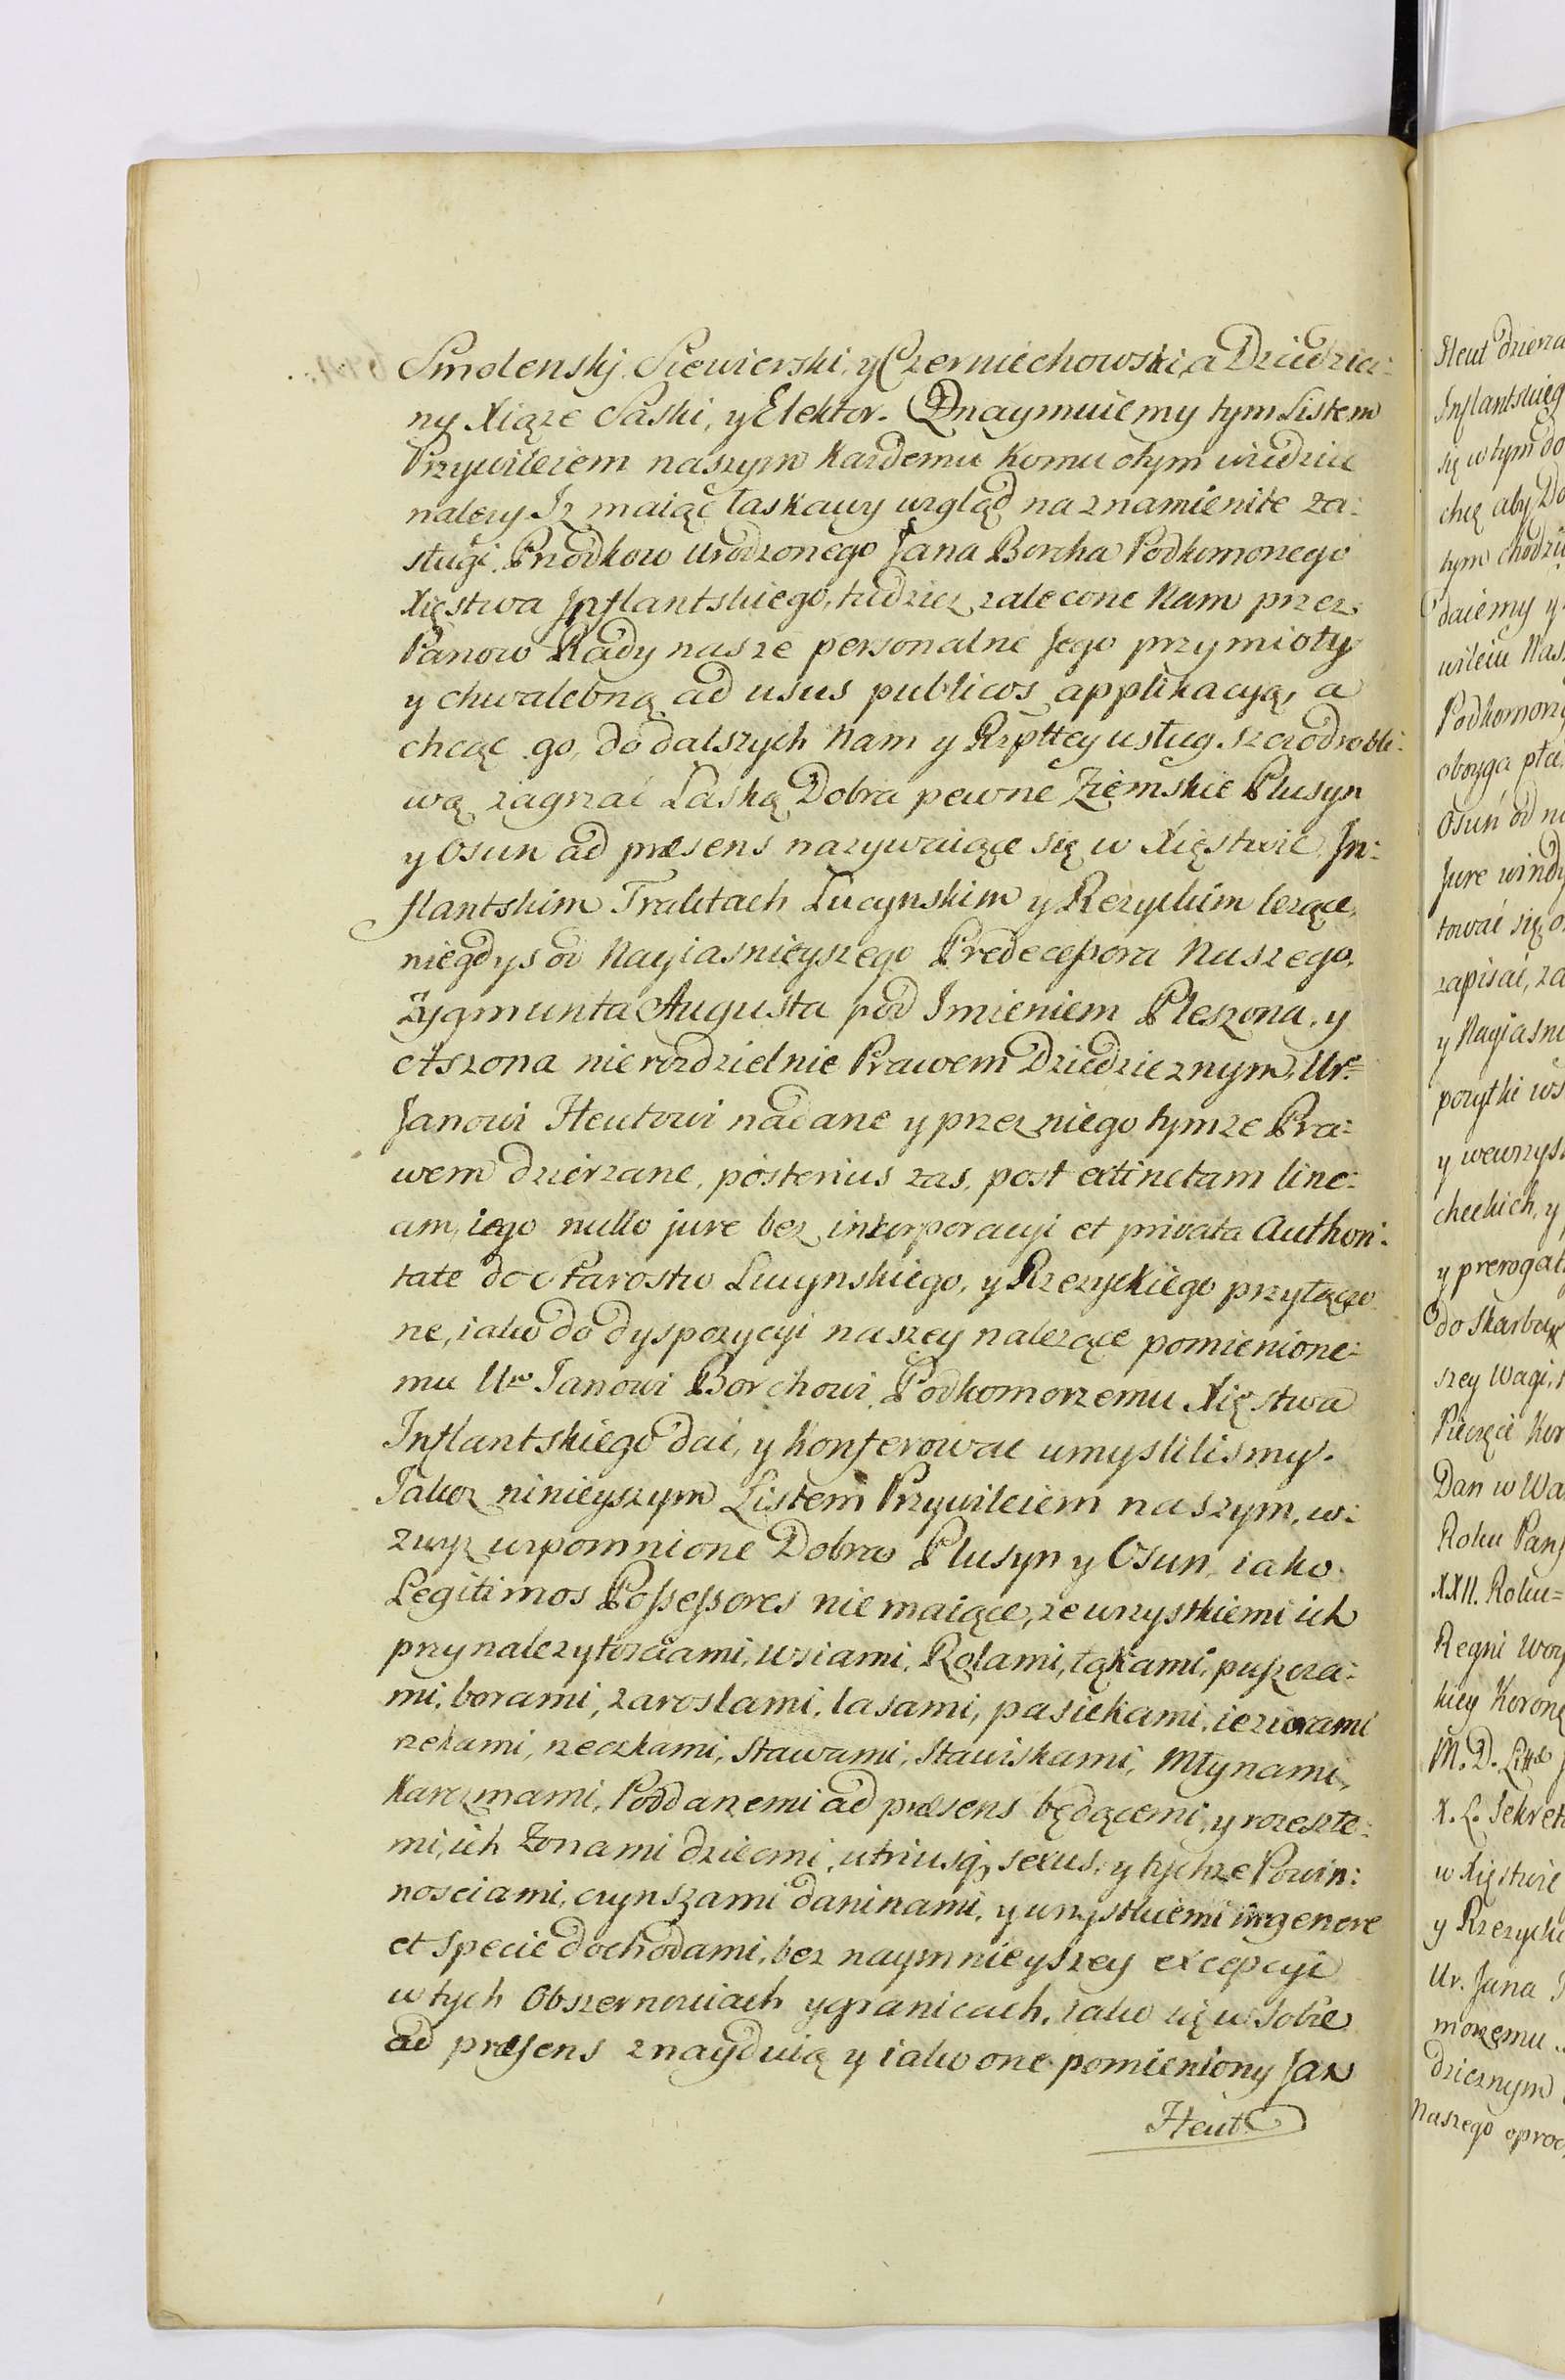 Smolenskj, Siewierski, y Czerniechowski, a Dziedzicz:
ny Xiąze Saski, y Elektor. Oznaymuiemy tym Listem
Przywileiem naszym Kazdemu Komu o tym wiedziec
nalezy Iz maiąc łaskawy wzgląd na znamienite za:
sługi Przodkow Urodzonego Jana Borcha Podkomorzego
Xięstwa Inflantskiego, tudziez zalecone Nam przez
Panow Rady nasze personalne Jego przymioty
y chwalebną ad usus publicos applikacyą, a
chcąc go do dalszych Nam y Rzpttey usług szczodrobli:
wą zagrzać Łaską Dobra pewne Ziemskie Plusyn
y Osun ad præsens nazywaiące się w Xięstwie In:
flantskim Traktach Lucynskim y Rezyckim lezące,
niegdys od Nayiasnieyszego Predecessora Naszego
Zygmunta Augusta pod Imieniem Pleszona, y
Aszona nierozdzielnie Prawem Dziedzicznym, Ur:
Janowi Heutowi nadane y przez niego tymze Pra:
wem dzierzane, posterius zas, post extinctam line:
am, iego nullo jure bez inkorporacyi et privata Authori:
tate do Starostw Lucynskiego, y Rzezyckiego przyłączo
ne, iako do dyspozycyi naszey nalezące pomienione:
mu Uro Janowi Borchowi Podkomorzemu Xięstwa
Inflantskiego dać, y Konferować umyslilismy.
Jakoz ninieyszym Listem Przywileiem naszym, w:
zwyz wzpomnione Dobra Plusyn y Osun, iako
Legitimos Possessores nie maiące, ze wszystkiemi ich
przynalezytosciami, wsiami, Rolami, łąkami, puszcza:
mi, borami, zaroslami, lasami, pasiekami, ieziorami
rzekami, rzeczkami, stawami, stawiskami, Młynami,
Karczmami, Poddanemi ad præsens będącemi, y rozeszłe:
mi, ich Zonami dziećmi, utriusq, sexus, y tychze Powin:
nosciami, czynszami daninami, y wszystkiemi in genere
et specie dochodami, bez naymnieyszey excepcyi
w tych Obszernosciach y granicach, iako się w sobie
ad præsens znayduią y iako one pomieniony Jan
Heut
Heut dzierza
Inflantskieg
się w tym do
chcą aby Do
tym chodzi
daiemy y
wileiu Nas
Podkomorz
oboyga płc
Osuń od n
Jure windy
tować się o
zapisać, za
y Nayiasn
pozytki ws
y wewnzys
checkich, y
y prerogat
do Skarbu
szey Wagi,
Pieczęć Kor
Dan w Wa
Roku Pans
XXII. Roku=
Regni Woy
kiey Korone
M. D. Litt
X. L. Sekret
w Xięstwie
y Rzezyck
Ur. Jana
morzemu
dzicznym
Naszego oproc